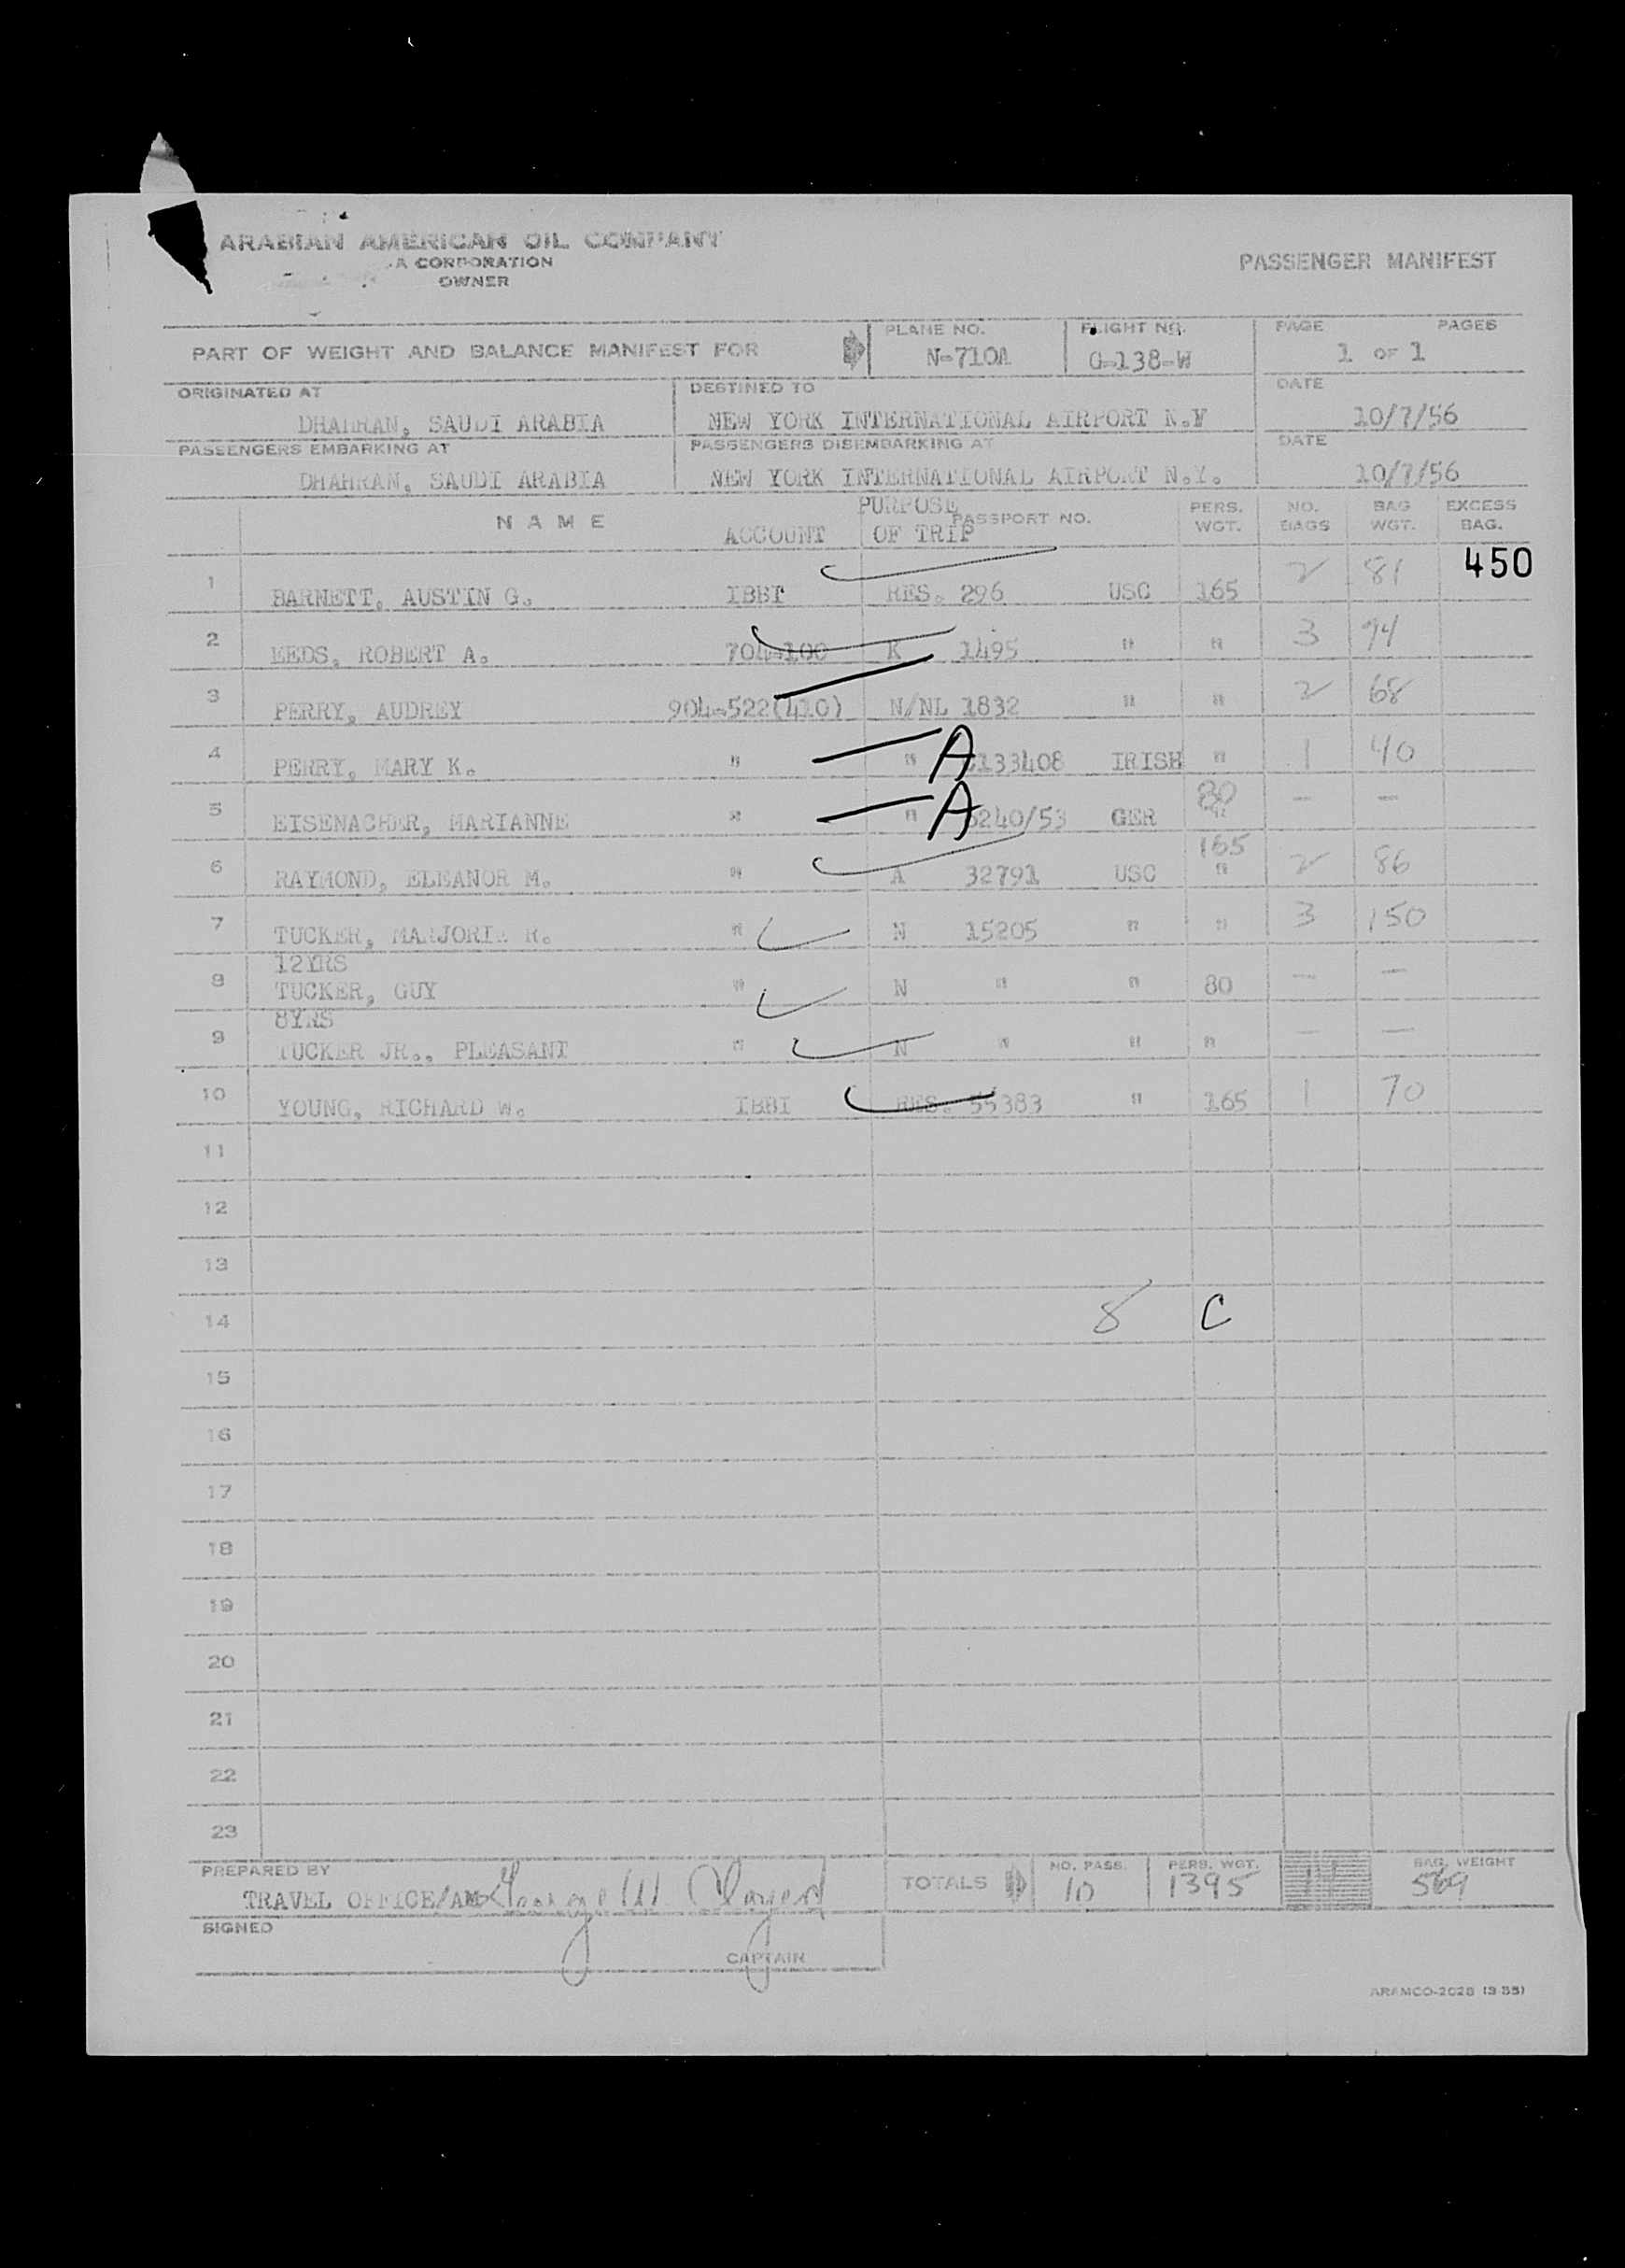 ARABIAN AMERICAN OIL COMPANY
A CORPORATION
OWNER
PASSENGER MANIFEST
PART OF WEIGHT AND BALANCE MANIFEST FOR
PLANE NO. N-710A
FLIGHT NO. G-138-W
PAGE 1 OF 1 PAGES
ORIGINATED AT
DHAHRAN, SAUDI ARABIA
DESTINED TO
NEW YORK INTERNATIONAL AIRPORT N.Y
DATE
10/7/56
PASSENGERS EMBARKING AT
DHAHRAN, SAUDI ARABIA
PASSENGERS DISEMBARKING AT
NEW YORK INTERNATIONAL AIRPORT N.Y.
DATE
10/7/56
NAME ACCOUNT PURPOSE OF TRIP PASSPORT NO. PERS. WGT. NO. BAGS BAG WGT. EXCESS BAG.
450
1 BARNETT, AUSTIN G. IBBI RES. 296 USC 165 2 81
2 EEDS, ROBERT A. 704-100 K 1495 " " 3 74
3 PERRY, AUDREY 904-522(410) N/NL 1832 " " 2 68
4 PERRY, MARY K. " " A 133408 IRISH " 1 40
5 EISENACHER, MARIANNE " " A 240/53 GER 80 " — —
6 RAYMOND, ELEANOR M. " A 32791 USC 165 " 2 86
7 TUCKER, MARJORIE R. " N 15205 " " 3 150
12YRS
8 TUCKER, GUY " N " " 80 — —
8YRS
9 TUCKER JR., PLEASANT " N " " " — —
10 YOUNG, RICHARD W. IBBI RES. 55383 " 165 1 70
11
12
13
14 8 C
15
16
17
18
19
20
21
22
23
PREPARED BY
TRAVEL OFFICE/AM
TOTALS
NO. PASS. 10
PERS. WGT. 1395
14
BAG. WEIGHT 569
SIGNED
CAPTAIN
ARAMCO-2028 (3-55)